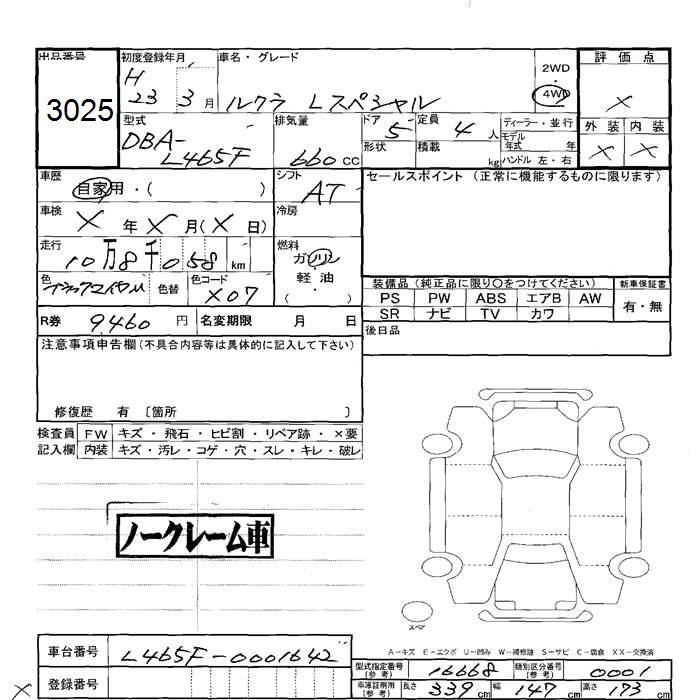 出品番号
3025
初度登録年月
H
23 3月
車名・グレード
ルクラ Lスペシャル
2WD
4WD
評価点
×
型式
DBA-
L465F
排気量
660 CC
ドア
5
形状
定員
4 人
積載
kg
ディーラー・並行
モデル
年式 年
ハンドル 左・右
外装 内装
× ×
車歴
自家用・( )
シフト
AT
セールスポイント (正常に機能するものに限ります)
車検
× 年 × 月(× 日)
冷房
走行
10万8千058 km
燃料
ガソリン
軽油
( ・ )
色
色替
色コード
X07
装備品(純正品に限り○をつけてください)
新車保証書
PS PW ABS エアB AW
SR ナビ TV カワ
有・無
R券 9,460 円 名変期限 月 日
後日品
注意事項申告欄(不具合内容等は具体的に記入して下さい)
修復歴 有 〔箇所 〕
検査員 FW キズ・飛石・ヒビ割・リペア跡・×要
記入欄 内装 キズ・汚レ・コゲ・穴・スレ・キレ・破レ
ノークレーム車
スペア
A−キズ E−エクボ U−凹み W−補修跡 S−サビ C−腐食 XX−交換済
車台番号 L465F-0001642
型式指定番号
(参考)
16668
類別区分番号
(参考)
0001
登録番号
車庫証明用
(参考)
長さ 339 cm 幅 147 cm 高さ 173 cm
×